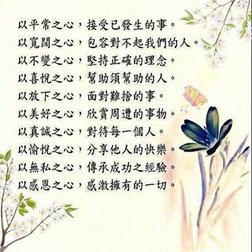 以平常之心，接受已發生的事。
以寬闊之心，包容對不起我們的人。
以不變之心，堅持正確的理念。
以喜悅之心，幫助須幫助的人。
以放下之心，面對難捨的事。
以美好之心，欣賞周遭的事物。
以真誠之心，對待每一個人。
以愉悅之心，分享他人的快樂。
以無私之心，傳承成功之經驗。
以感恩之心，感激擁有的一切。